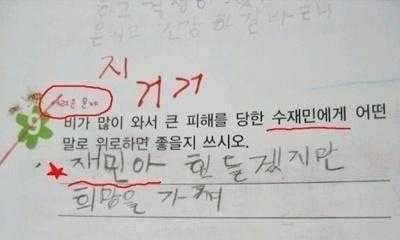 지
거거
9
비가 많이 와서 큰 피해를 당한 수재민에게 어떤
말로 위로하면 좋을지 쓰시오.
재민아 힌들겠지만
희망을 가져